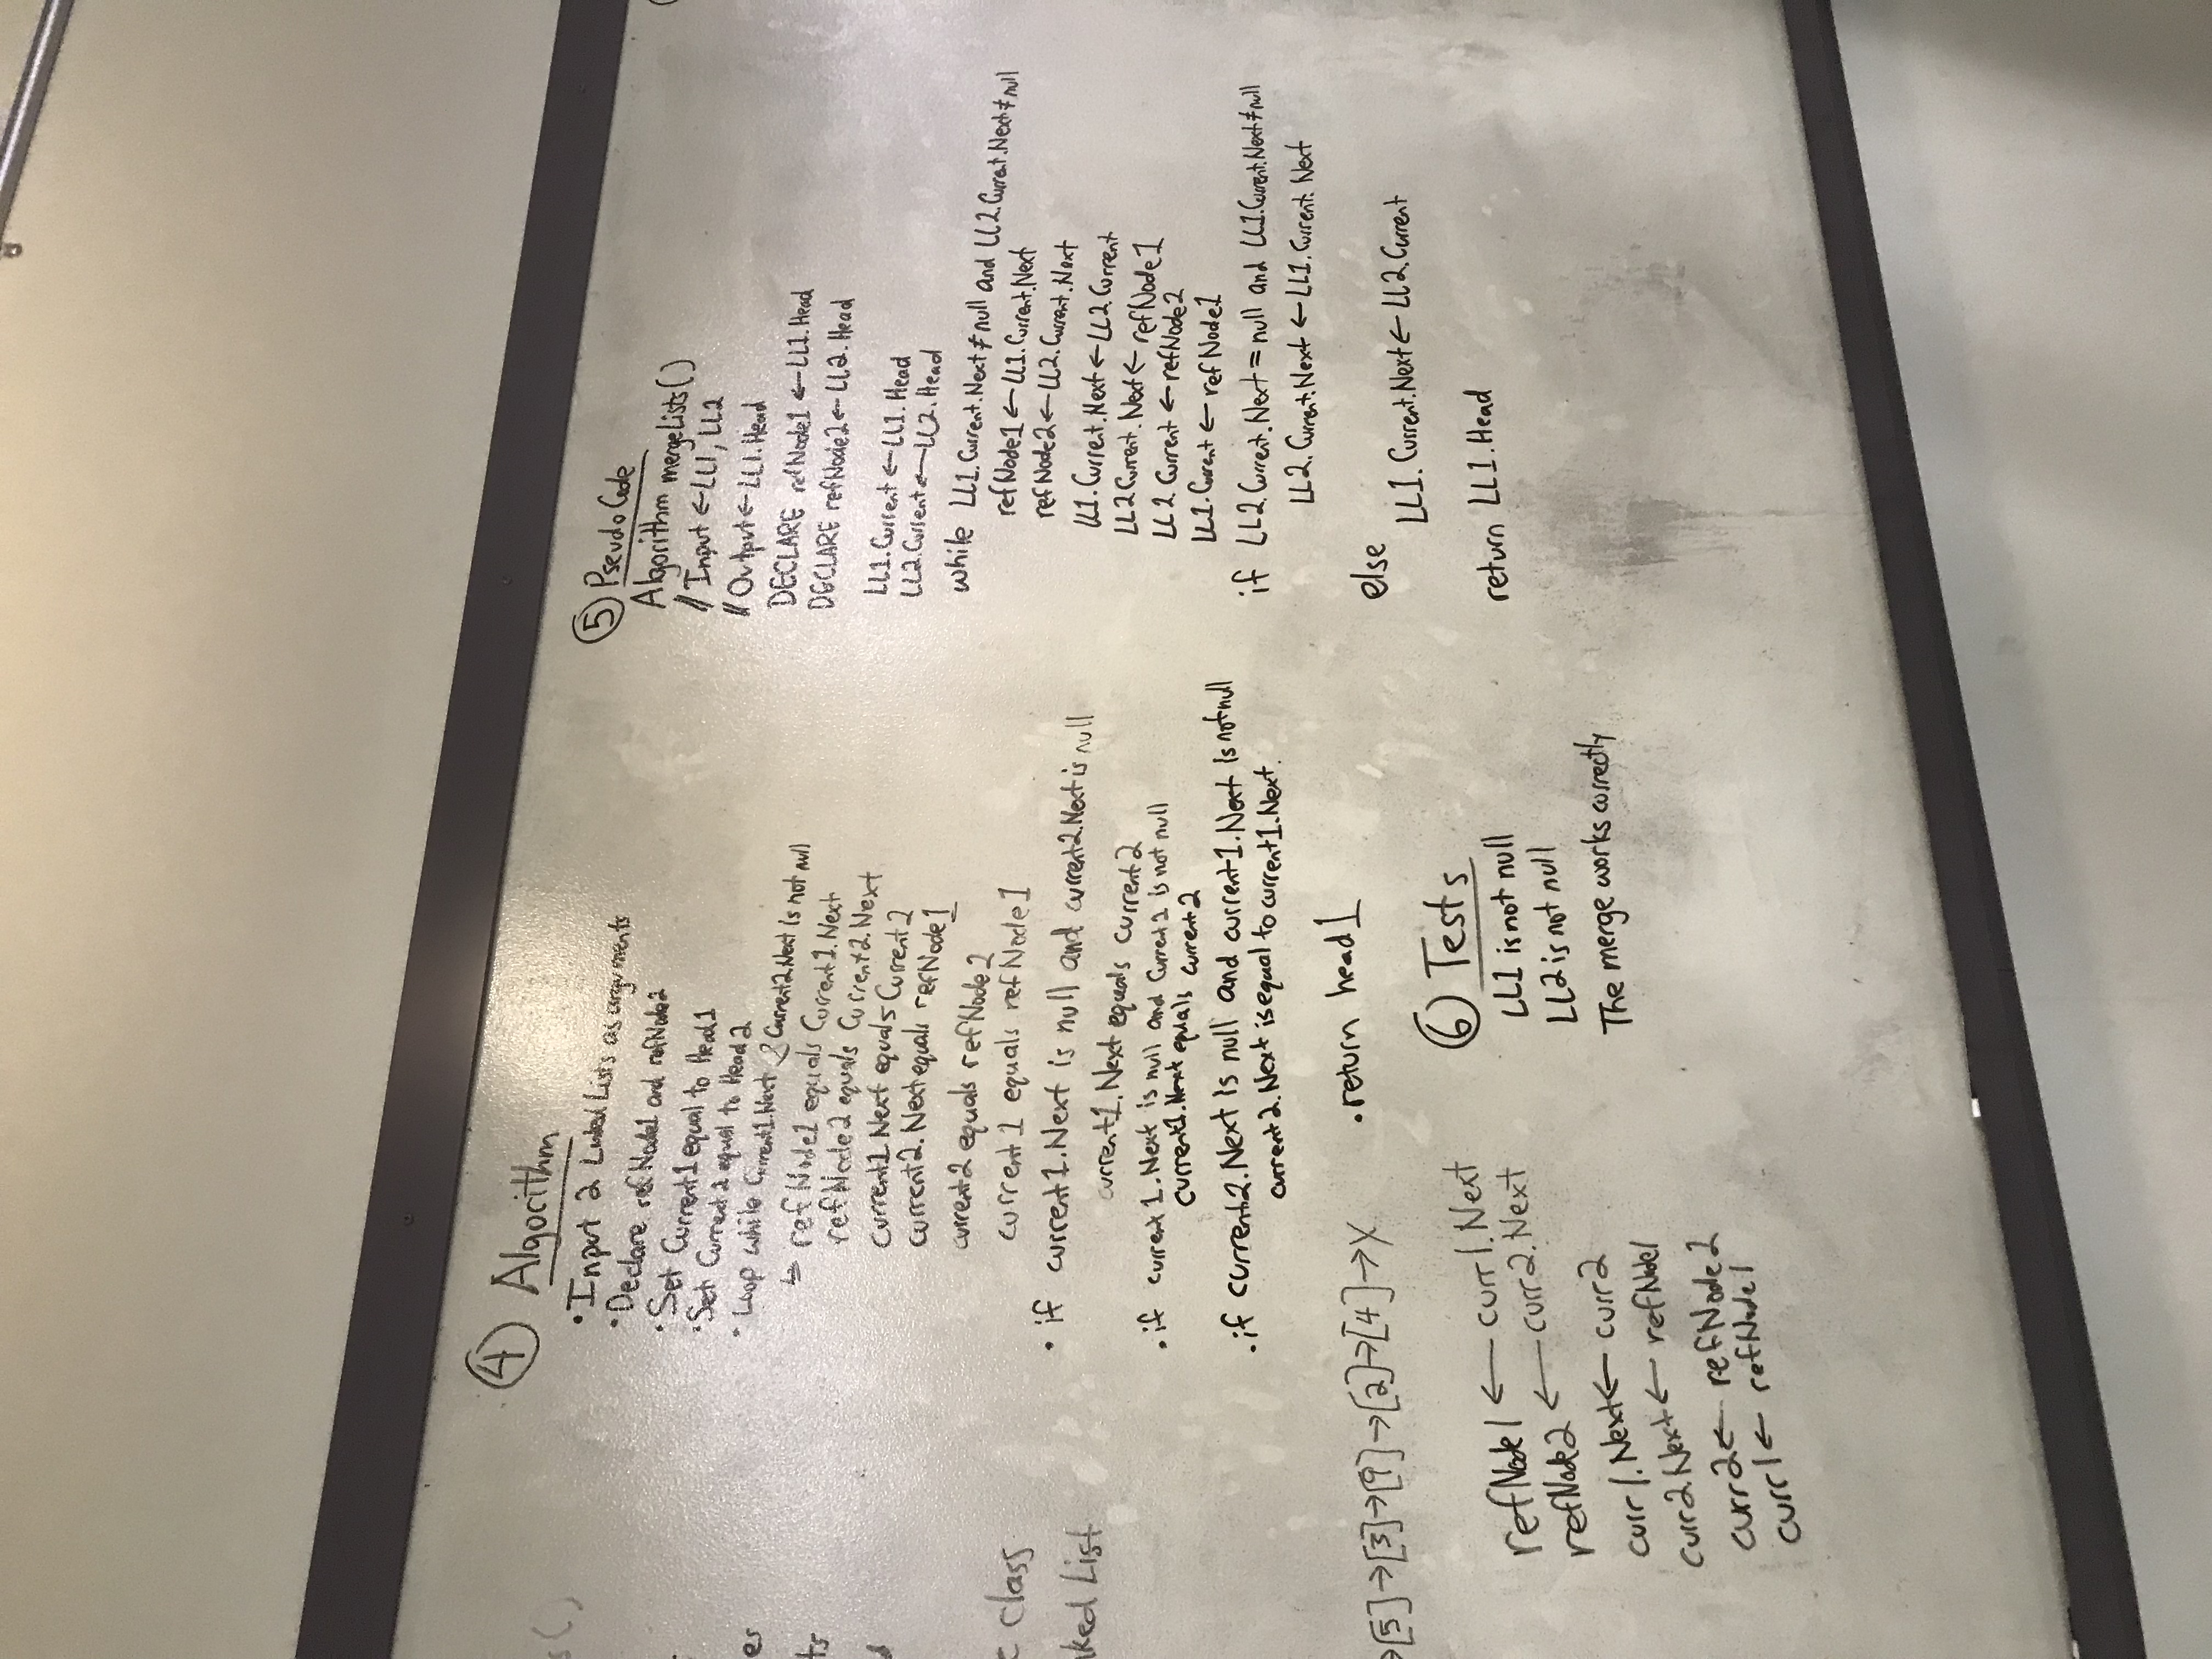 s()
es
ts
c class
ked List
→[5]→[3]→[9]→[2]→[4]→X
refNode1 ← curr1.Next
refNode2 ← curr2.Next
curr1.Next ← curr2
curr2.Next ← refNode1
curr2 ← refNode2
curr1 ← refNode1
④ Algorithm
• Input 2 Linked Lists as arguments
• Declare refNode1 and refNode2
• Set Current1 equal to Head1
• Set Current2 equal to Head2
• Loop while Current1.Next & Current2.Next is not null
↳ refNode1 equals Current1.Next
refNode2 equals Current2.Next
Current1.Next equals Current2
current2.Next equals refNode1
current2 equals refNode2
current1 equals refNode1
• if current1.Next is null and current2.Next is null
current1.Next equals current2
• if current1.Next is null and Current2 is not null
current1.Next equals current2
• if current2.Next is null and current1.Next is not null
current2.Next is equal to current1.Next.
• return head1
⑥ Tests
LL1 is not null
LL2 is not null
The merge works correctly
⑤ Pseudo Code
Algorithm mergeLists()
// Input ← LL1, LL2
// Output ← LL1.Head
DECLARE refNode1 ← LL1.Head
DECLARE refNode2 ← LL2.Head
LL1.Current ← LL1.Head
LL2.Current ← LL2.Head
while LL1.Current.Next ≠ null and LL2.Current.Next ≠ null
refNode1 ← LL1.Current.Next
refNode2 ← LL2.Current.Next
LL1.Current.Next ← LL2.Current
LL2.Current.Next ← refNode1
LL2.Current ← refNode2
LL1.Current ← refNode1
if LL2.Current.Next = null and LL1.Current.Next ≠ null
LL2.Current.Next ← LL1.Current.Next
else
LL1.Current.Next ← LL2.Current
return LL1.Head